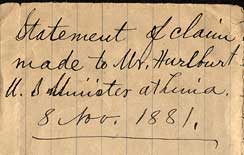 Statement of claim
made to Mr. Hurlburt
U. S Minister at Lima.
8 Nov. 1881.